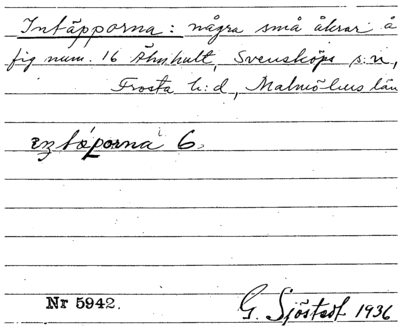 Intäpporna: några små åkrar å
fig num. 16 Ähnhult, Svensköps s:n,
Frosta h:d, Malmöhus län
6.
Nr 5942.
G. Sjöstedt 1936